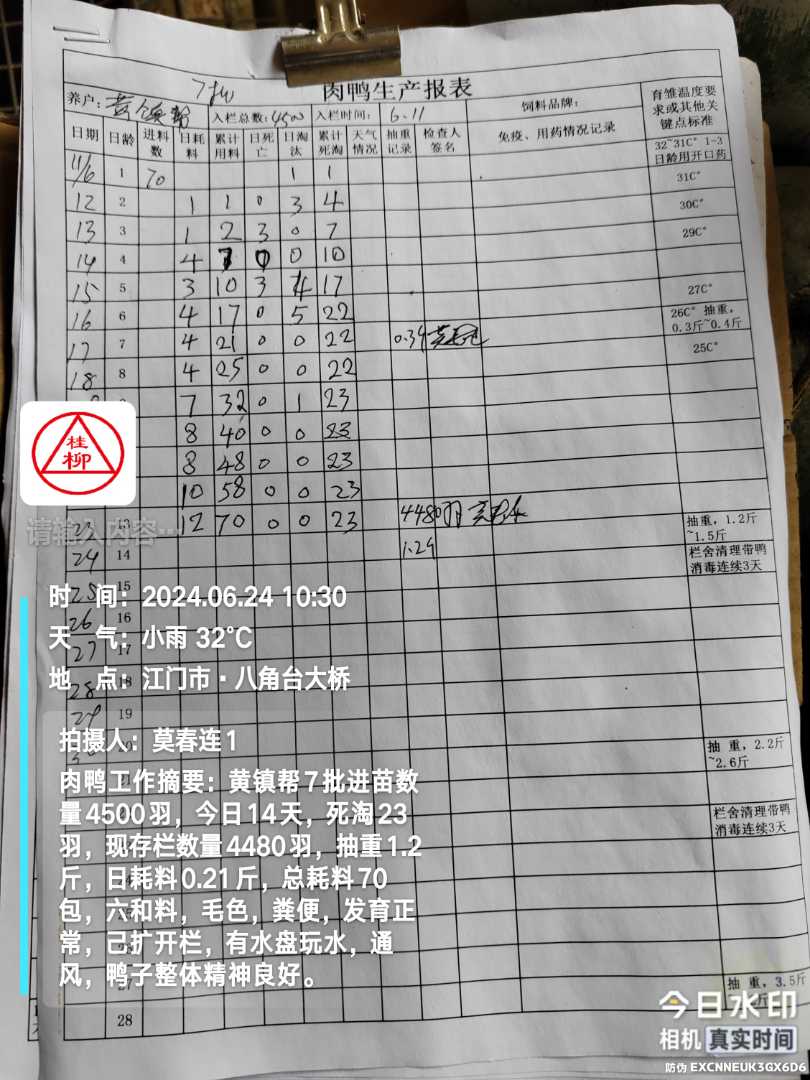 7批 肉鸭生产报表
养户: 黄镇帮 入栏总数: 4500 入栏时间: 6.11 饲料品牌: 育雏温度要求或其他关键点标准
日期 日龄 进料数 日耗料 累计用料 日死亡 日淘汰 累计死淘 天气情况 抽重记录 检查人签名 免疫、用药情况记录
11/6 1 70 1 1 32~31C° 1-3日龄用开口药
12 2 1 1 0 3 4 31C°
13 3 1 2 3 0 7 30C°
14 4 4 7 0 0 10 29C°
15 5 3 10 3 4 17
16 6 4 17 0 5 22 27C°
17 7 4 21 0 0 22 0.34 26C° 抽重, 0.3斤~0.4斤
18 8 4 25 0 0 22 25C°
7 32 0 1 23
8 40 0 0 23
8 48 0 0 23
10 58 0 0 23
23 13 12 70 0 0 23 4480羽 抽重, 1.2斤~1.5斤
24 14 1.29 栏舍清理带鸭消毒连续3天
25 15
26 16
27 17
28 18
29 19
抽 重, 2.2斤~2.6斤
栏舍清理带鸭消毒连续3天
抽 重, 3.5斤
28
桂柳
请输入内容…
时 间: 2024.06.24 10:30
天 气: 小雨 32℃
地 点: 江门市·八角台大桥
拍摄人: 莫春连1
肉鸭工作摘要: 黄镇帮7批进苗数
量4500羽, 今日14天, 死淘23
羽, 现存栏数量4480羽, 抽重1.2
斤, 日耗料0.21斤, 总耗料70
包, 六和料, 毛色, 粪便, 发育正
常, 己扩开栏, 有水盘玩水, 通
风, 鸭子整体精神良好。
今日水印
相机 真实时间
防伪 EXCNNEUK3GX6D6